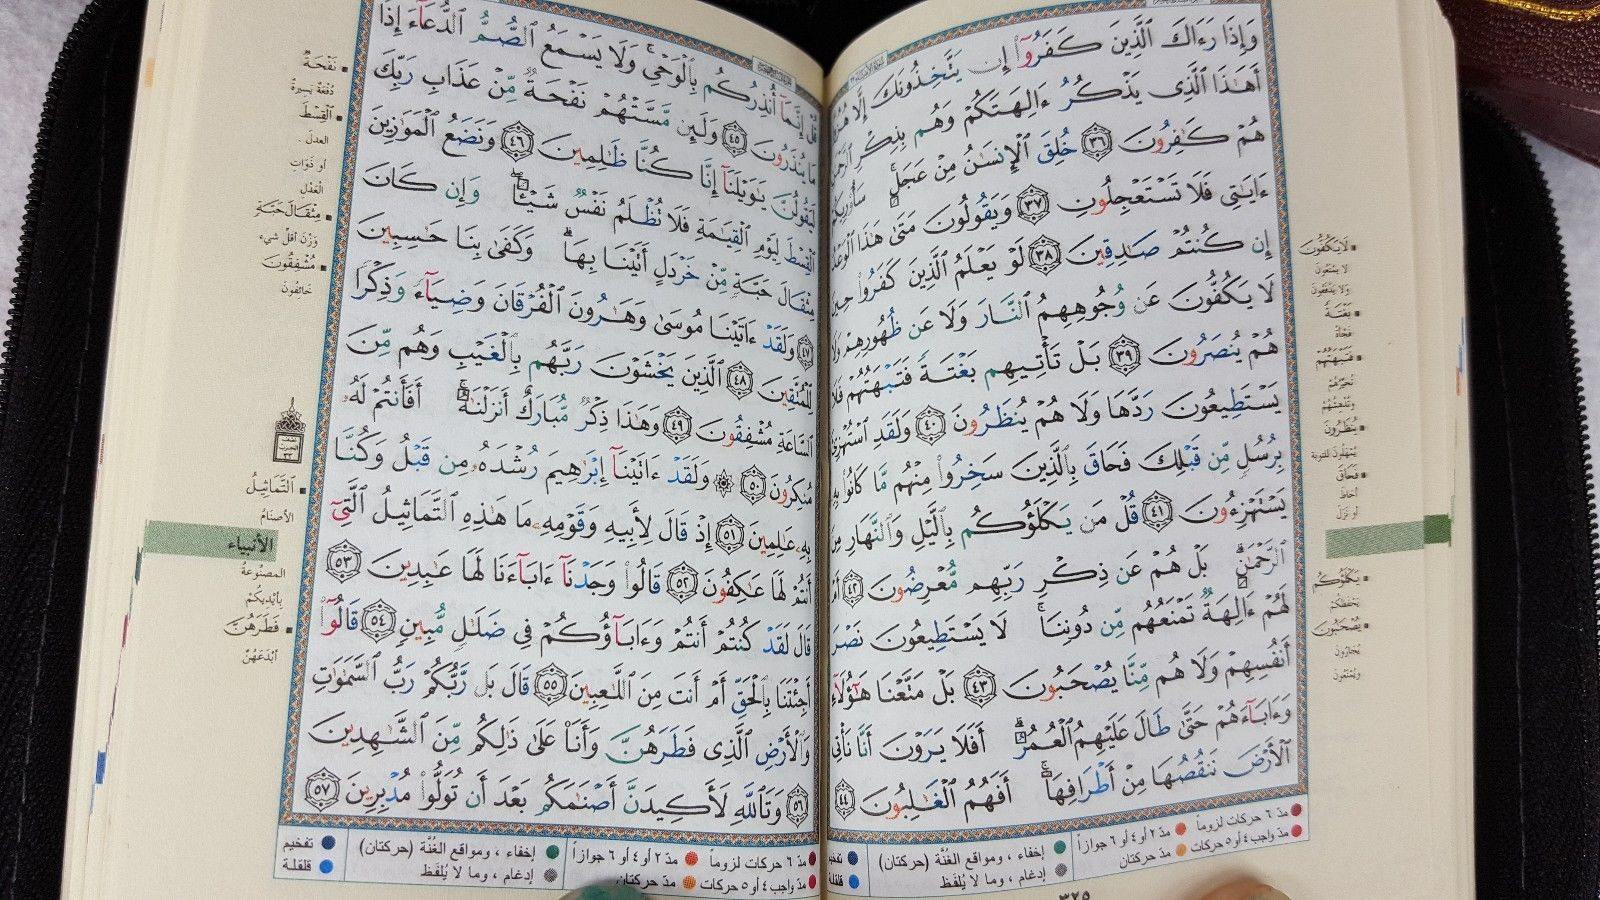 وَإِذَا رَءَاكَ ٱلَّذِينَ كَفَرُوٓا۟ إِن يَتَّخِذُونَكَ إِلَّا
أَهَٰذَا ٱلَّذِى يَذْكُرُ ءَالِهَتَكُمْ وَهُم بِذِكْرِ
هُمْ كَٰفِرُونَ ٣٦ خُلِقَ ٱلْإِنسَٰنُ مِنْ عَجَلٍ
ءَايَٰتِى فَلَا تَسْتَعْجِلُونِ ٣٧ وَيَقُولُونَ مَتَىٰ هَٰذَا ٱلْوَعْدُ
إِن كُنتُمْ صَٰدِقِينَ ٣٨ لَوْ يَعْلَمُ ٱلَّذِينَ كَفَرُوا۟ حِينَ
لَا يَكُفُّونَ عَن وُجُوهِهِمُ ٱلنَّارَ وَلَا عَن ظُهُورِهِمْ
هُمْ يُنصَرُونَ ٣٩ بَلْ تَأْتِيهِم بَغْتَةً فَتَبْهَتُهُمْ
يَسْتَطِيعُونَ رَدَّهَا وَلَا هُمْ يُنظَرُونَ ٤٠ وَلَقَدِ
بِرُسُلٍ مِّن قَبْلِكَ فَحَاقَ بِٱلَّذِينَ سَخِرُوا۟ مِنْهُم مَّا كَانُوا۟
يَسْتَهْزِءُونَ ٤١ قُلْ مَن يَكْلَؤُكُم بِٱلَّيْلِ وَٱلنَّهَارِ
ٱلرَّحْمَٰنِ بَلْ هُمْ عَن ذِكْرِ رَبِّهِم مُّعْرِضُونَ ٤٢
لَهُمْ ءَالِهَةٌ تَمْنَعُهُم مِّن دُونِنَا لَا يَسْتَطِيعُونَ نَصْرَ
أَنفُسِهِمْ وَلَا هُم مِّنَّا يُصْحَبُونَ ٤٣ بَلْ مَتَّعْنَا هَٰٓؤُلَآءِ
وَءَابَآءَهُمْ حَتَّىٰ طَالَ عَلَيْهِمُ ٱلْعُمُرُ أَفَلَا يَرَوْنَ أَنَّا نَأْتِى
ٱلْأَرْضَ نَنقُصُهَا مِنْ أَطْرَافِهَآ أَفَهُمُ ٱلْغَٰلِبُونَ ٤٤
لَا يَكُفُّونَ
لا يمنعون
بَغْتَةً
فجأة
فَتَبْهَتُهُمْ
يُنظَرُونَ
فَحَاقَ
أحاط
أو نزل
يَكْلَؤُكُم
يحفظكم
يُصْحَبُونَ
يجارون
ويمنعون
مدّ ٦ حركات لزوماً مدّ ٢ أو ٤ أو ٦ جوازاً
مدّ واجب ٤ أو ٥ حركات مدّ حركتان
إخفاء ، ومواقع الغنّة (حركتان)
إدغام ، وما لا يُلفَظ
تفخيم
قلقلة
٣٢٥
قُلْ إِنَّمَآ أُنذِرُكُم بِٱلْوَحْىِ وَلَا يَسْمَعُ ٱلصُّمُّ ٱلدُّعَآءَ إِذَا
مَا يُنذَرُونَ ٤٥ وَلَئِن مَّسَّتْهُمْ نَفْحَةٌ مِّنْ عَذَابِ رَبِّكَ
لَيَقُولُنَّ يَٰوَيْلَنَآ إِنَّا كُنَّا ظَٰلِمِينَ ٤٦ وَنَضَعُ ٱلْمَوَٰزِينَ
ٱلْقِسْطَ لِيَوْمِ ٱلْقِيَٰمَةِ فَلَا تُظْلَمُ نَفْسٌ شَيْـًٔا وَإِن كَانَ
مِثْقَالَ حَبَّةٍ مِّنْ خَرْدَلٍ أَتَيْنَا بِهَا وَكَفَىٰ بِنَا حَٰسِبِينَ
٤٧ وَلَقَدْ ءَاتَيْنَا مُوسَىٰ وَهَٰرُونَ ٱلْفُرْقَانَ وَضِيَآءً وَذِكْرًا
لِّلْمُتَّقِينَ ٤٨ ٱلَّذِينَ يَخْشَوْنَ رَبَّهُم بِٱلْغَيْبِ وَهُم مِّنَ
ٱلسَّاعَةِ مُشْفِقُونَ ٤٩ وَهَٰذَا ذِكْرٌ مُّبَارَكٌ أَنزَلْنَٰهُ أَفَأَنتُمْ لَهُۥ
مُنكِرُونَ ٥٠ ۞ وَلَقَدْ ءَاتَيْنَآ إِبْرَٰهِيمَ رُشْدَهُۥ مِن قَبْلُ وَكُنَّا
بِهِۦ عَٰلِمِينَ ٥١ إِذْ قَالَ لِأَبِيهِ وَقَوْمِهِۦ مَا هَٰذِهِ ٱلتَّمَاثِيلُ ٱلَّتِىٓ
أَنتُمْ لَهَا عَٰكِفُونَ ٥٢ قَالُوا۟ وَجَدْنَآ ءَابَآءَنَا لَهَا عَٰبِدِينَ ٥٣
قَالَ لَقَدْ كُنتُمْ أَنتُمْ وَءَابَآؤُكُمْ فِى ضَلَٰلٍ مُّبِينٍ ٥٤ قَالُوٓا۟
أَجِئْتَنَا بِٱلْحَقِّ أَمْ أَنتَ مِنَ ٱللَّٰعِبِينَ ٥٥ قَالَ بَل رَّبُّكُمْ رَبُّ ٱلسَّمَٰوَٰتِ
وَٱلْأَرْضِ ٱلَّذِى فَطَرَهُنَّ وَأَنَا۠ عَلَىٰ ذَٰلِكُم مِّنَ ٱلشَّٰهِدِينَ
٥٦ وَتَٱللَّهِ لَأَكِيدَنَّ أَصْنَٰمَكُم بَعْدَ أَن تُوَلُّوا۟ مُدْبِرِينَ ٥٧
نَفْحَةٌ
دُفعة يسيرة
ٱلْقِسْطَ
العدل .
أو ذوات
العدل
مِثْقَالَ حَبَّةٍ
وزن أقلّ شيء
مُشْفِقُونَ
خائفون
ٱلتَّمَاثِيلُ
الأصنام
الأنبياء
المصنوعة
بأيديكم
فَطَرَهُنَّ
أبدعهنّ
مدّ ٦ حركات لزوماً مدّ ٢ أو ٤ أو ٦ جوازاً
مدّ واجب ٤ أو ٥ حركات مدّ حركتان
إخفاء ، ومواقع الغنّة (حركتان)
إدغام ، وما لا يُلفَظ
تفخيم
قلقلة